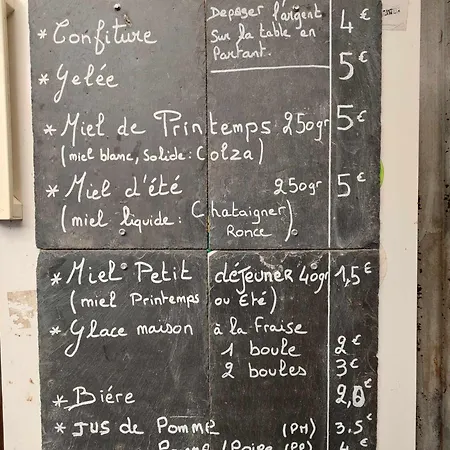 * Confiture
Deposer l'argent
sur la table en
partant.
4€
* Gelée 5€
* Miel de Printemps 250gr 5€
(miel blanc, solide: Colza)
* Miel d'été 250gr 5€
(miel liquide: Chataigner
Ronce)
* Miel Petit déjeuner 40gr 1,5€
(miel Printemps ou Eté)
* Glace maison à la Fraise
1 boule 2€
2 boules 3€
* Biére 2,0€
* JUS de Pomme (PM) 3.5€
Pomme/Poire (PP) 4€